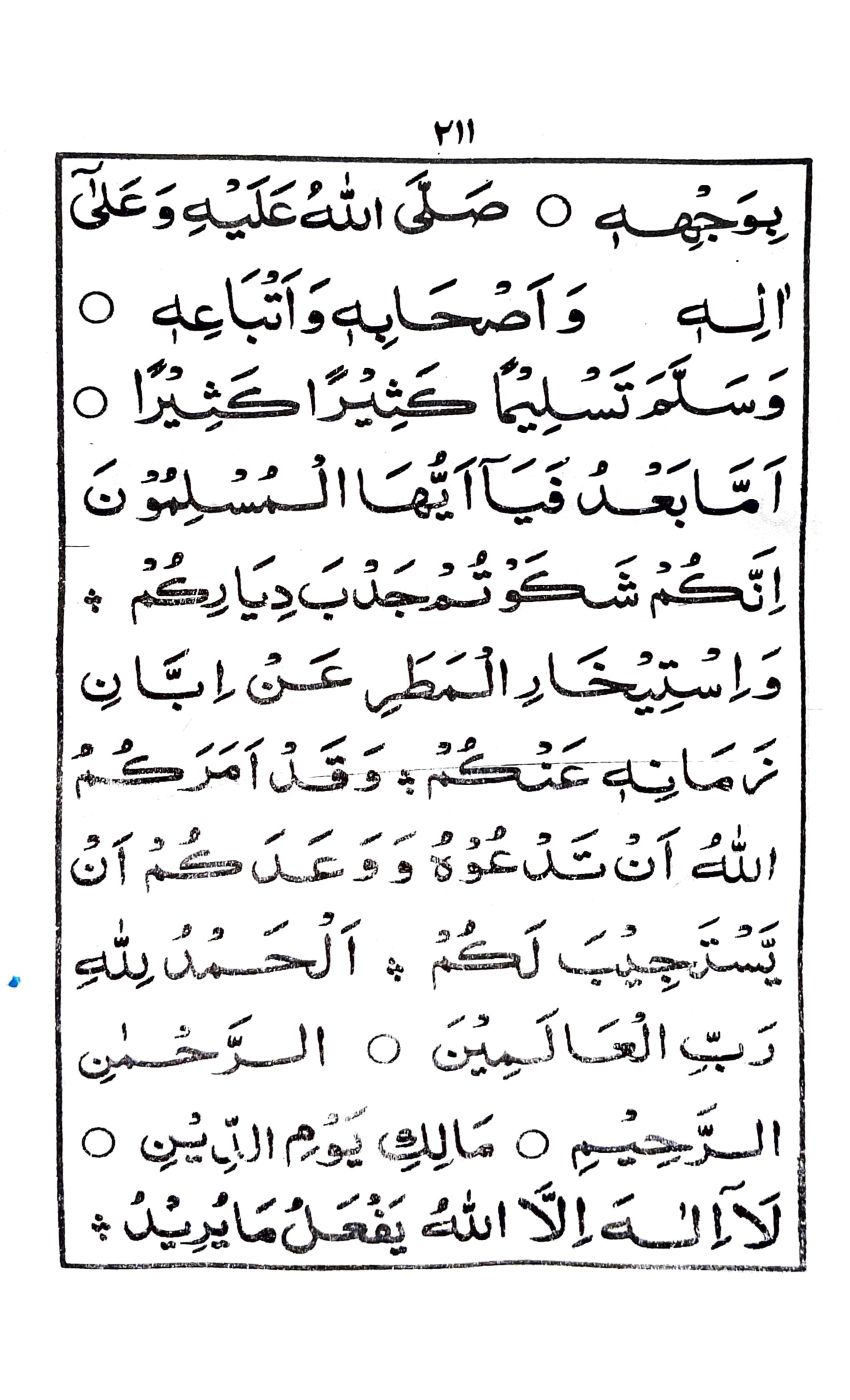 ٢١١
بِوَجْهِهٖ ○ صَلَّى اللّٰهُ عَلَيْهِ وَعَلٰٓى
اٰلِهٖ وَاَصْحَابِهٖ وَاَتْبَاعِهٖ ○
وَسَلَّمَ تَسْلِيْمًا كَثِيْرًا كَثِيْرًا ○
اَمَّا بَعْدُ فَيَآ اَيُّهَا الْمُسْلِمُوْنَ
اِنَّكُمْ شَكَوْتُمْ جَدْبَ دِيَارِكُمْ ؞
وَاِسْتِيْخَارِ الْمَطَرِ عَنْ اِبَّانِ
زَمَانِهٖ عَنْكُمْ ؞ وَقَدْ اَمَرَكُمُ
اللّٰهُ اَنْ تَدْعُوْهُ وَوَعَدَكُمْ اَنْ
يَّسْتَجِيْبَ لَكُمْ ؞ اَلْحَمْدُ لِلّٰهِ
رَبِّ الْعَالَمِيْنَ ○ الرَّحْمٰنِ
الرَّحِيْمِ ○ مَالِكِ يَوْمِ الدِّيْنِ ○
لَآ اِلٰهَ اِلَّا اللّٰهُ يَفْعَلُ مَا يُرِيْدُ ؞